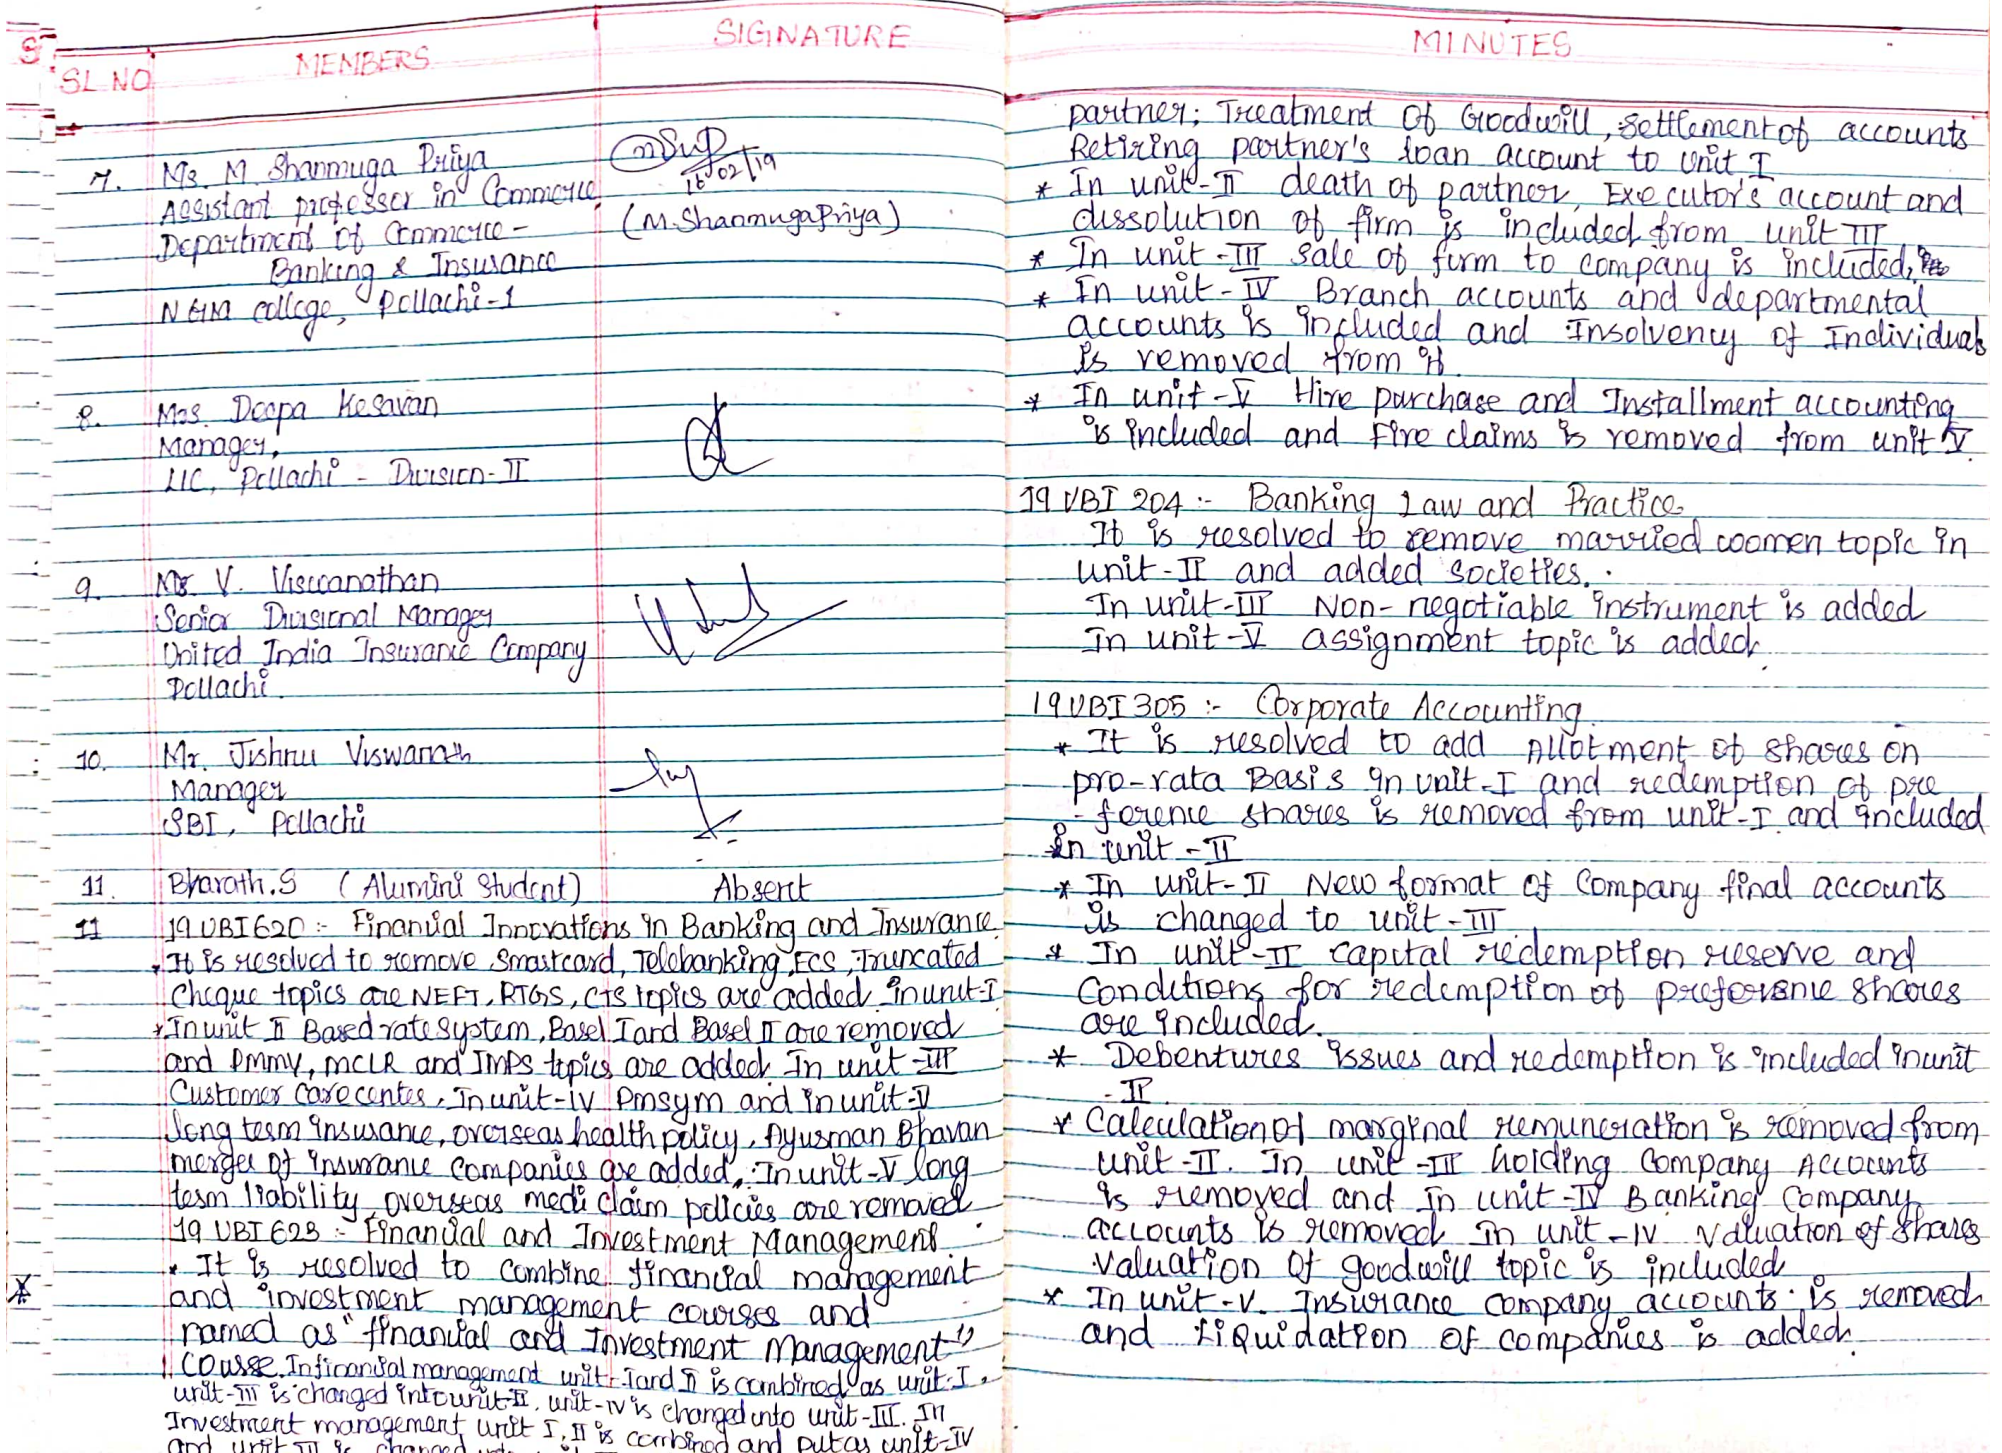 SL NO
MEMBERS
SIGNATURE
7.
Ms. M. Shanmuga Priya
Assistant professor in Commerce
Department of Commerce -
Banking & Insurance
NGM college, Pollachi-1
16/02/19
(M.Shanmugapriya)
8.
Mrs. Deepa Kesavan
Manager,
LIC, Pollachi - Division-II
9.
Mr. V. Viswanathan
Senior Divisional Manager
United India Insurance Company
Pollachi.
10.
Mr. Jishnu Viswanath
Manager
SBI, Pollachi
11.
Bharath.S (Alumini Student)
Absent
11
19UBI620 :- Financial Innovations in Banking and Insurance
* It is resolved to remove Smartcard, Telebanking, ECS, Truncated
Cheque topics are NEFT, RTGS, CTS topics are added in unit-I
* In unit II Based rate system, Basel I and Basel II are removed
and PMMY, MCLR and IMPS topics are added. In unit-III
Customer care center, In unit-IV Pmsym and in unit-V
long term insurance, overseas health policy, Ayusman Bhavan
merger of insurance companies are added. In unit-V long
term liability, overseas medi claim policies are removed
19 UBI 623 :- Financial and Investment Management.
* It is resolved to combine financial management
and investment management courses and
named as "financial and Investment Management"
course. In financial management unit-I and II is combined as unit-I,
unit-III is changed into unit-II, unit-IV is changed into unit-III. In
Investment management, unit I, II is combined and put as unit-IV
and unit III is changed
MINUTES
partner; Treatment of Goodwill, settlement of accounts
Retiring partner's loan account to unit I
* In unit-II death of partner, Executor's account and
dissolution of firm is included from unit III
* In unit-III sale of firm to company is included,
* In unit-IV Branch accounts and departmental
accounts is included and Insolvency of Individuals
is removed from it.
* In unit-V Hire purchase and Installment accounting
is included and Fire claims is removed from unit V.
19 UBI 204 :- Banking Law and Practice
It is resolved to remove married women topic in
unit-II and added societies.
In unit-III Non-negotiable instrument is added
In unit-V assignment topic is added.
19UBI305 :- Corporate Accounting
* It is resolved to add Allotment of shares on
pro-rata Basis in unit-I and redemption of pre
-ference shares is removed from unit-I and included
in unit-II
* In unit-II New format of Company final accounts
is changed to unit-III
* In unit-II capital redemption reserve and
Conditions for redemption of preference shares
are included.
* Debentures issues and redemption is included in unit
-II.
* Calculation of marginal remuneration is removed from
unit-II. In unit-III holding Company Accounts
is removed and in unit-IV Banking Company
accounts is removed In unit-IV Valuation of shares
Valuation of goodwill topic is included
* In unit-V. Insurance company accounts is removed
and Liquidation of companies is added.